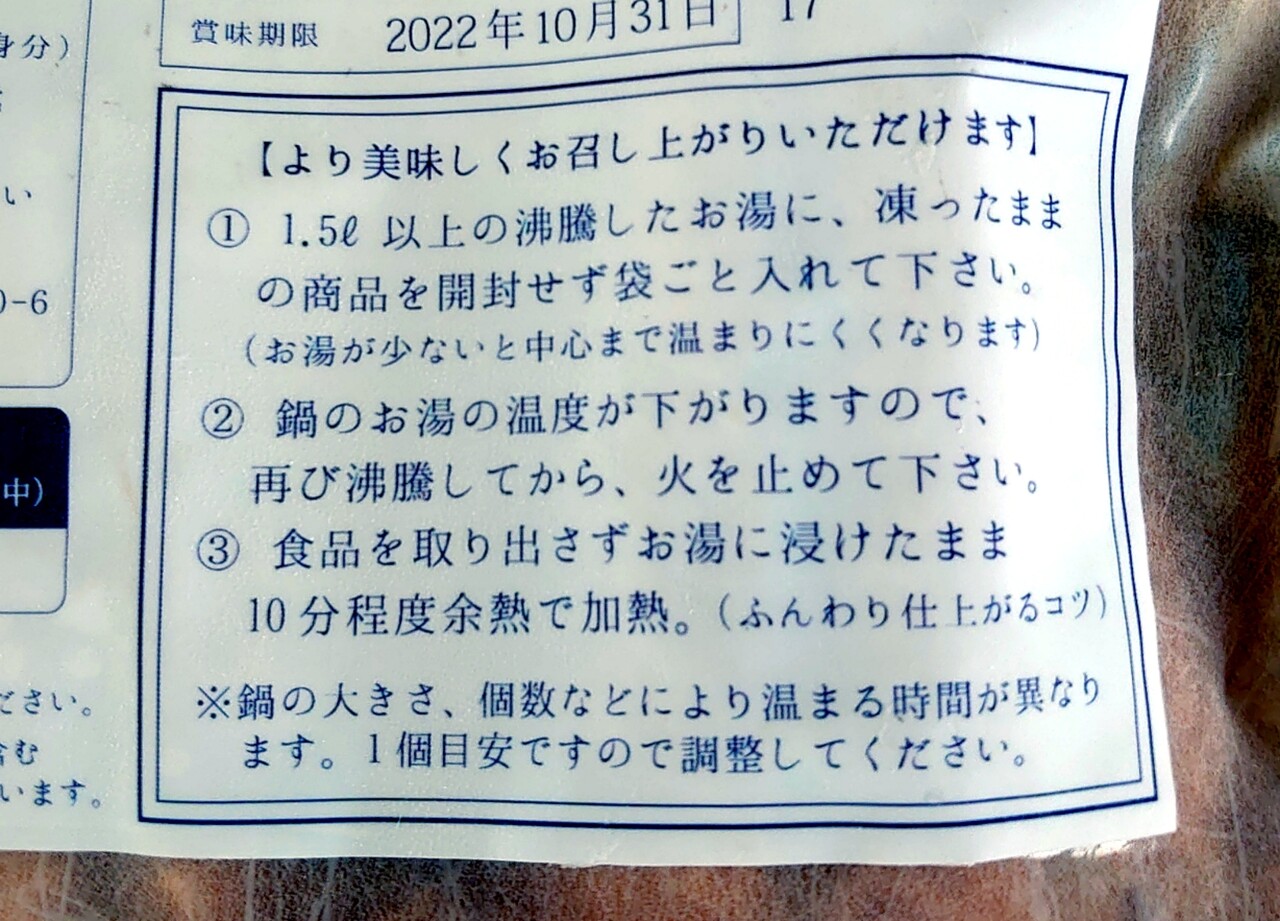 身分)
賞味期限 2022年10月31日 17
い
0-6
中)
ださい。
含む
います。
【より美味しくお召し上がりいただけます】
① 1.5ℓ 以上の沸騰したお湯に、凍ったまま
の商品を開封せず袋ごと入れて下さい。
(お湯が少ないと中心まで温まりにくくなります)
② 鍋のお湯の温度が下がりますので、
再び沸騰してから、火を止めて下さい。
③ 食品を取り出さずお湯に浸けたまま
10分程度余熱で加熱。(ふんわり仕上がるコツ)
※鍋の大きさ、個数などにより温まる時間が異なり
ます。1個目安ですので調整してください。